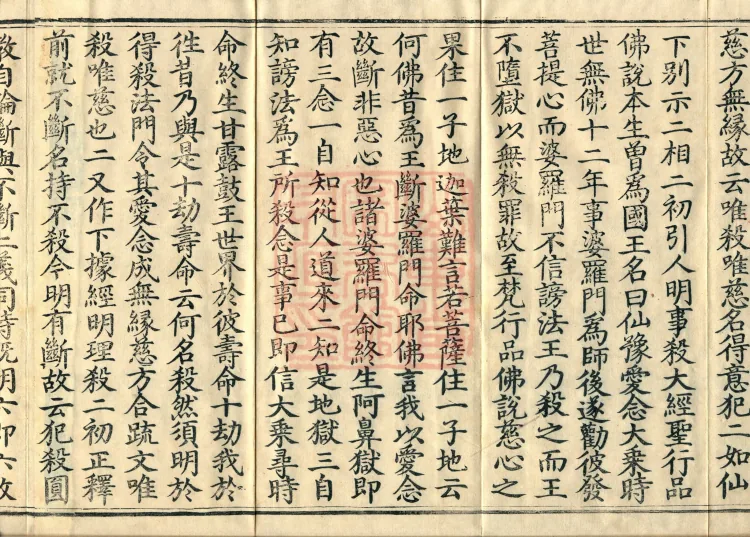 慈方無縁故云唯殺唯慈名得意犯二如仙
下别示二相二初引人明事殺大經聖行品
佛說本生曾爲國王名曰仙豫愛念大乗時
世無佛十二年事婆羅門爲師後遂勸彼發
菩提心而婆羅門不信謗法王乃殺之而王
不墮獄以無殺罪故至梵行品佛說慈心之
果住一子地迦葉難言若菩薩住一子地云
何佛昔爲王斷婆羅門命耶佛言我以愛念
故斷非惡心也諸婆羅門命終生阿鼻獄即
有三念一自知從人道來二知是地獄三自
知謗法爲王所殺念是事已即信大乗尋時
命終生甘露鼓王世界於彼壽命十劫我於
徃昔乃與是十劫壽命云何名殺然須明於
得殺法門令其愛念成無縁慈方合疏文唯
殺唯慈也二又作下據經明理殺二初正釋
前就不斷名持不殺今明有斷故云犯殺圓
教自論斷與不斷二義同時旣明六即六故